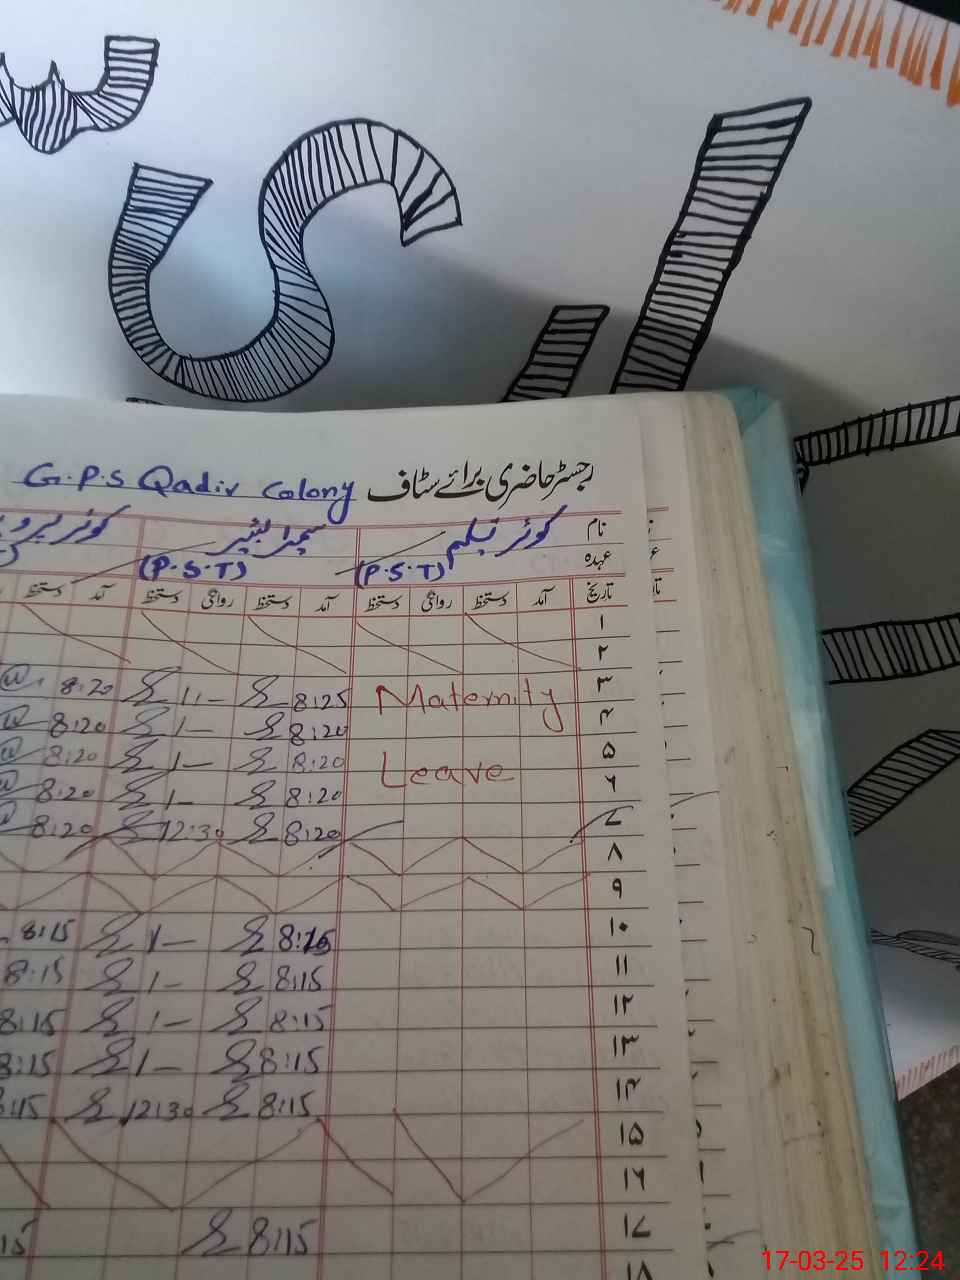 رجسٹر حاضری برائے سٹاف G.P.S Qadir Colony
نام کوثر نیلم
عہدہ (P.S.T) (P.S.T)
تاریخ آمد دستخط روانگی دستخط آمد دستخط روانگی دستخط آمد دستخط
۱
۲
۳ Maternity 8:25 1:- 8:20
۴ 8:20 1- 8:20
۵ Leave 8:20 1- 8:20
۶ 8:20 1- 8:20
۷ 8:20 12:30 8:20
۸
۹
۱۰ 8:15 1- 8:15
۱۱ 8:15 1- 8:15
۱۲ 8:15 1- 8:15
۱۳ 8:15 1- 8:15
۱۴ 8:15 12:30 8:15
۱۵
۱۶
۱۷ 8:15
۱۸
17-03-25 12:24